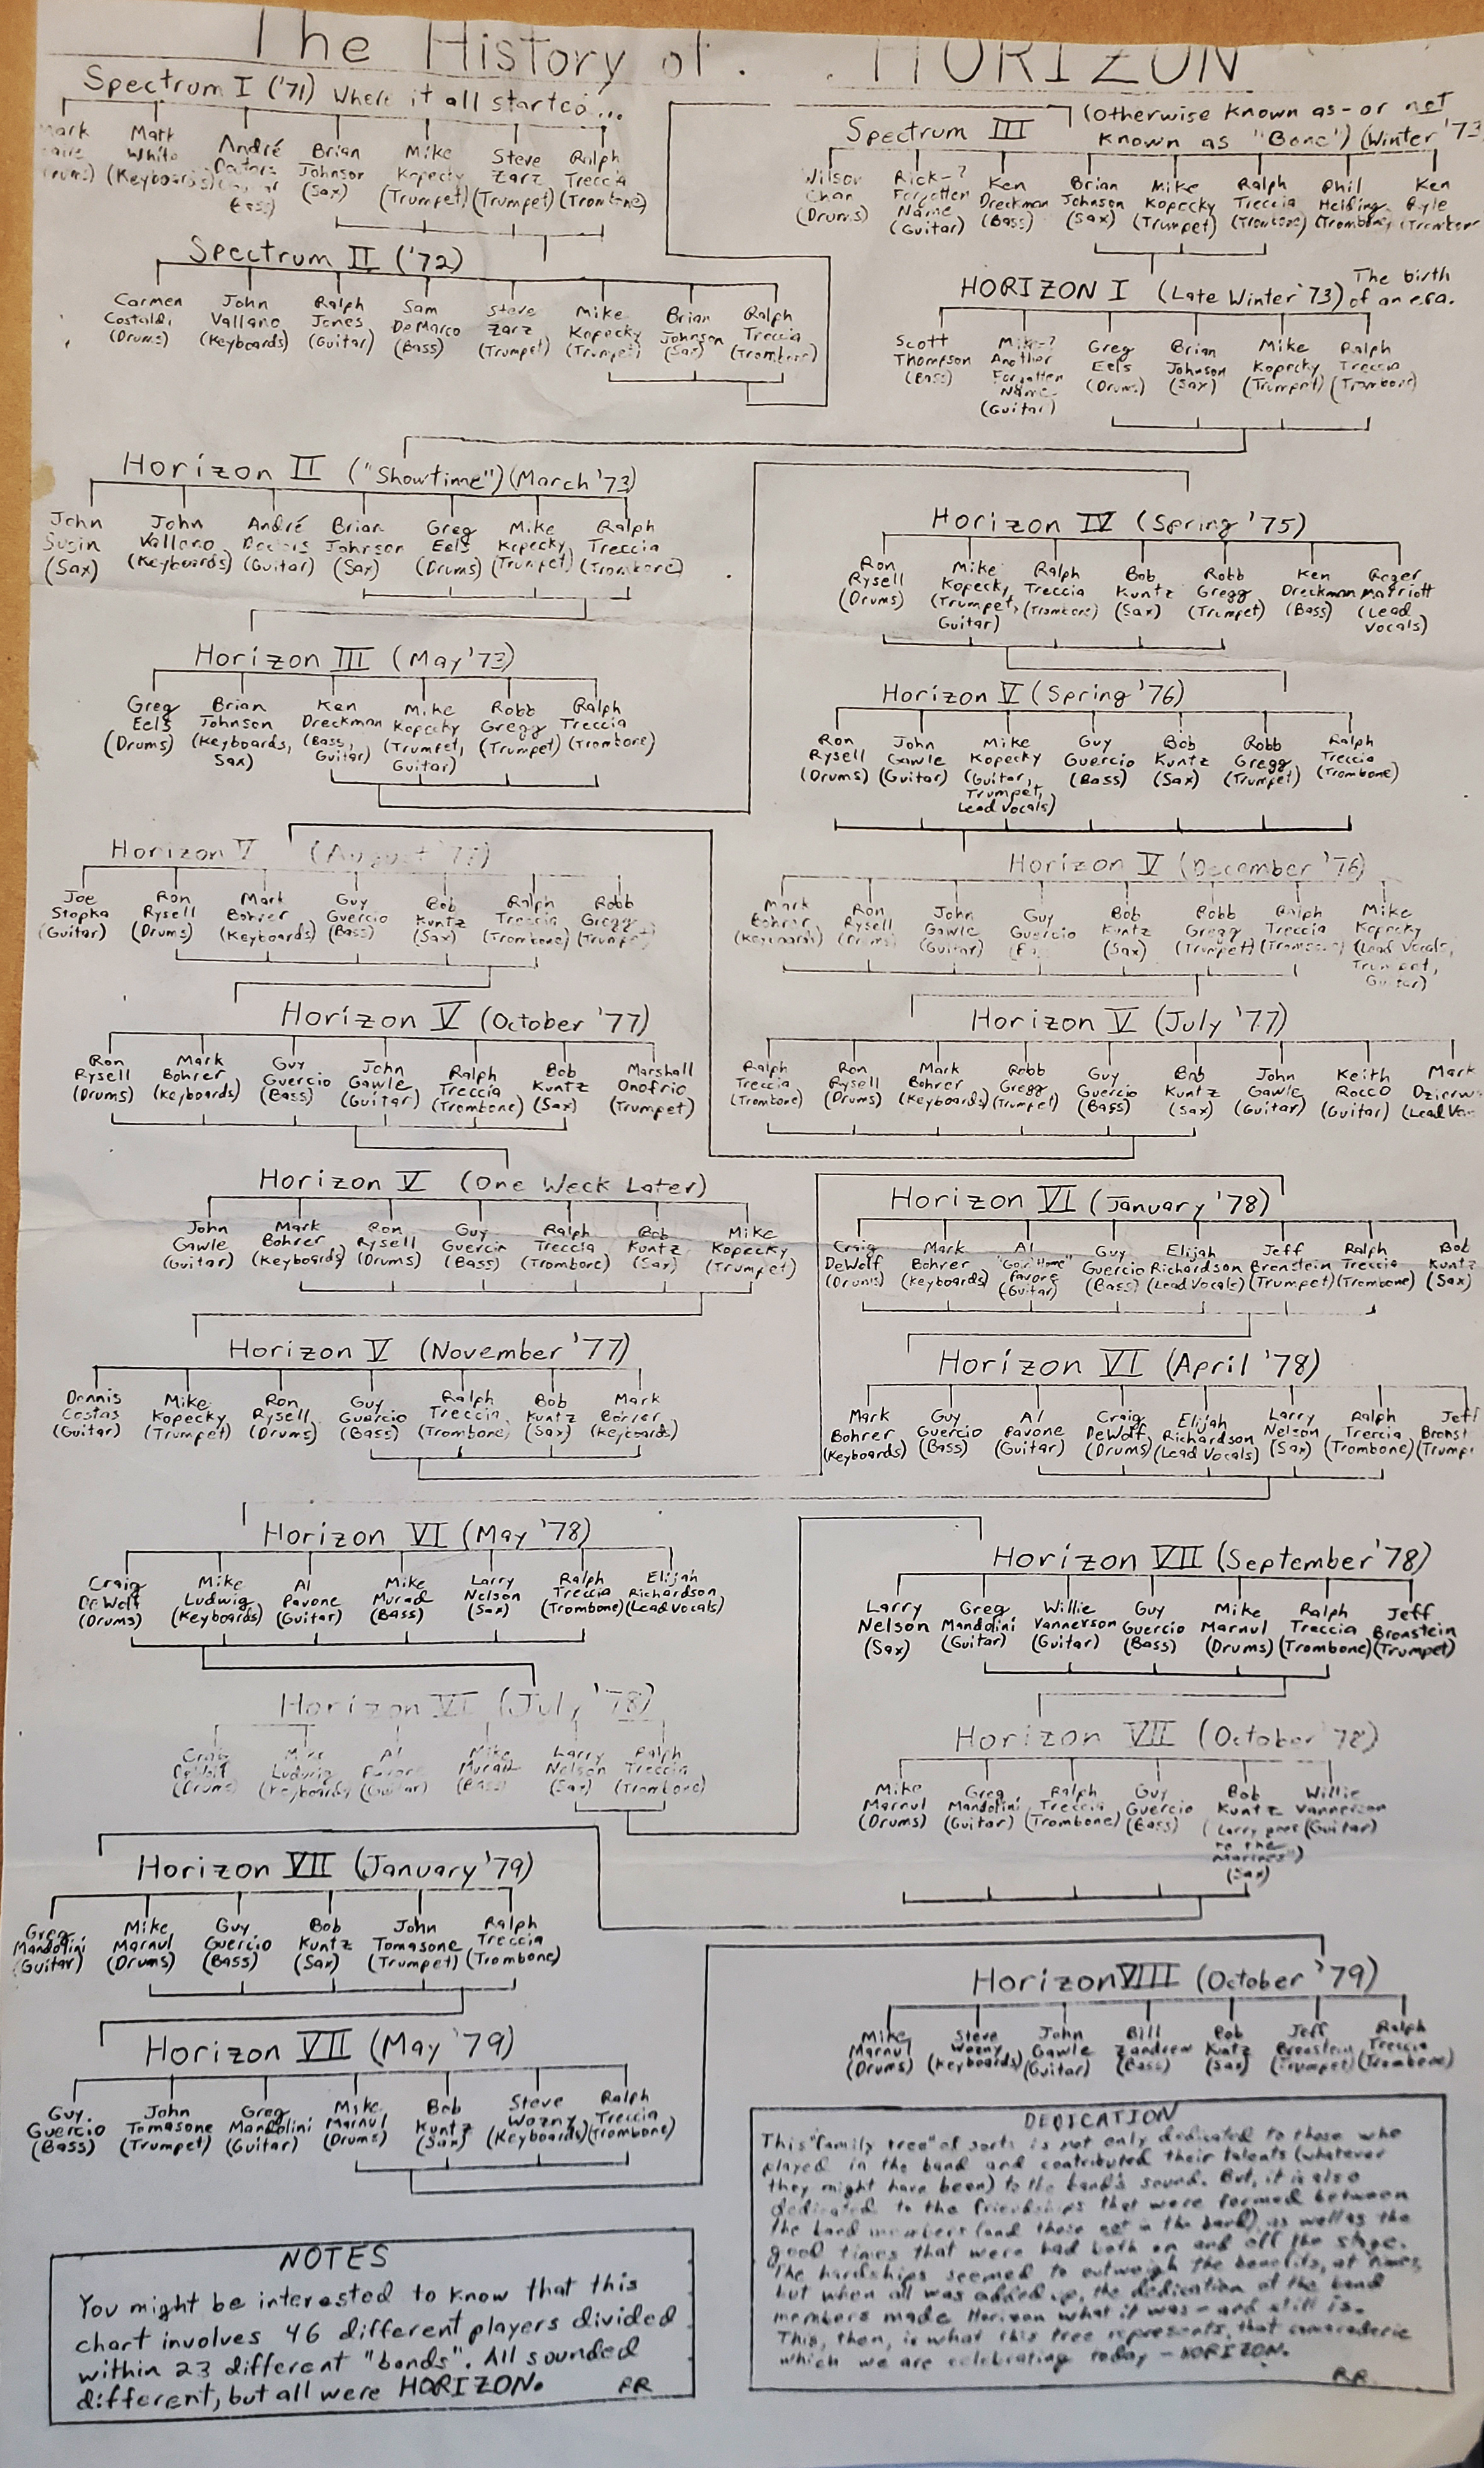 The History of . . . HORIZON
Spectrum I ('71) Where it all started...
Mark
Matt White (Keyboards)
André
Brian Johnson (Sax)
Mike Kopecky (Trumpet)
Steve Zarz (Trumpet)
Ralph Treccia (Trombone)
Spectrum II ('72)
Carmen Costaldi (Drums)
John Vallano (Keyboards)
Ralph Jones (Guitar)
Sam DeMarco (Bass)
Steve Zarz (Trumpet)
Mike Kopecky (Trumpet)
Brian Johnson (Sax)
Ralph Treccia (Trombone)
Spectrum III (Otherwise known as - or not
known as "Bone") (Winter '73
Wilson Chan (Drums)
Rick-? Forgotten Name (Guitar)
Ken Dreckman (Bass)
Brian Johnson (Sax)
Mike Kopecky (Trumpet)
Ralph Treccia (Trombone)
Phil Helding (Trombone)
Ken
HORIZON I (Late Winter '73) The birth
of an era.
Scott Thompson (Bass)
Mike-? Another Forgotten Name (Guitar)
Greg Eels (Drums)
Brian Johnson (Sax)
Mike Kopecky (Trumpet)
Ralph Treccia (Trombone)
Horizon II ("Showtime") (March '73)
John Susin (Sax)
John Vallano (Keyboards)
André (Guitar)
Brian Johnson (Sax)
Greg Eels (Drums)
Mike Kopecky (Trumpet)
Ralph Treccia (Trombone)
Horizon III (May '73)
Greg Eels (Drums)
Brian Johnson (Keyboards, Sax)
Ken Dreckman (Bass, Guitar)
Mike Kopecky (Trumpet, Guitar)
Robb Gregg (Trumpet)
Ralph Treccia (Trombone)
Horizon IV (Spring '75)
Ron Rysell (Drums)
Mike Kopecky (Trumpet, Guitar)
Ralph Treccia (Trombone)
Bob Kuntz (Sax)
Robb Gregg (Trumpet)
Ken Dreckman (Bass)
Roger Marriott (Lead Vocals)
Horizon V (Spring '76)
Ron Rysell (Drums)
John Gawle (Guitar)
Mike Kopecky (Guitar, Trumpet, Lead Vocals)
Guy Guercio (Bass)
Bob Kuntz (Sax)
Robb Gregg (Trumpet)
Ralph Treccia (Trombone)
Horizon V (December '76)
Mark Bohrer (Keyboards)
Ron Rysell (Drums)
John Gawle (Guitar)
Guy Guercio
Bob Kuntz (Sax)
Robb Gregg (Trumpet)
Ralph Treccia (Trombone)
Mike Kopecky (Lead Vocals, Trumpet, Guitar)
Horizon V (July '77)
Ralph Treccia (Trombone)
Ron Rysell (Drums)
Mark Bohrer (Keyboards)
Robb Gregg (Trumpet)
Guy Guercio (Bass)
Bob Kuntz (Sax)
John Gawle (Guitar)
Keith Rocco (Guitar)
Mark Dzierw (Lead Vo
Horizon V (August '77)
Joe Stopka (Guitar)
Ron Rysell (Drums)
Mark Bohrer (Keyboards)
Guy Guercio (Bass)
Bob Kuntz (Sax)
Ralph Treccia (Trombone)
Robb Gregg (Trumpet)
Horizon V (October '77)
Ron Rysell (Drums)
Mark Bohrer (Keyboards)
Guy Guercio (Bass)
John Gawle (Guitar)
Ralph Treccia (Trombone)
Bob Kuntz (Sax)
Marshall Onofrio (Trumpet)
Horizon V (One Week Later)
John Gawle (Guitar)
Mark Bohrer (Keyboards)
Ron Rysell (Drums)
Guy Guercio (Bass)
Ralph Treccia (Trombone)
Bob Kuntz (Sax)
Mike Kopecky (Trumpet)
Horizon V (November '77)
Dennis Costas (Guitar)
Mike Kopecky (Trumpet)
Ron Rysell (Drums)
Guy Guercio (Bass)
Ralph Treccia (Trombone)
Bob Kuntz (Sax)
Mark Bohrer (Keyboards)
Horizon VI (January '78)
Craig DeWolf (Drums)
Mark Bohrer (Keyboards)
Al "Goin' Home" Pavone (Guitar)
Guy Guercio (Bass)
Elijah Richardson (Lead Vocals)
Jeff Bronstein (Trumpet)
Ralph Treccia (Trombone)
Bob Kuntz (Sax)
Horizon VI (April '78)
Mark Bohrer (Keyboards)
Guy Guercio (Bass)
Al Pavone (Guitar)
Craig DeWolf (Drums)
Elijah Richardson (Lead Vocals)
Larry Nelson (Sax)
Ralph Treccia (Trombone)
Jeff Bronst (Trump
Horizon VI (May '78)
Craig DeWolf (Drums)
Mike Ludwig (Keyboards)
Al Pavone (Guitar)
Mike Murad (Bass)
Larry Nelson (Sax)
Ralph Treccia (Trombone)
Elijah Richardson (Lead Vocals)
Horizon VI (July '78)
Craig DeWolf (Drums)
Mike Ludwig (Keyboards)
Al Pavone (Guitar)
Mike Murad (Bass)
Larry Nelson (Sax)
Ralph Treccia (Trombone)
Horizon VII (September '78)
Larry Nelson (Sax)
Greg Mandolini (Guitar)
Willie Vannerson (Guitar)
Guy Guercio (Bass)
Mike Marnul (Drums)
Ralph Treccia (Trombone)
Jeff Bronstein (Trumpet)
Horizon VII (October '78)
Mike Marnul (Drums)
Greg Mandolini (Guitar)
Ralph Treccia (Trombone)
Guy Guercio (Bass)
Bob Kuntz ("Larry goes to the Marines") (Sax)
Willie Vannerson (Guitar)
Horizon VII (January '79)
Greg Mandolini (Guitar)
Mike Marnul (Drums)
Guy Guercio (Bass)
Bob Kuntz (Sax)
John Tomasone (Trumpet)
Ralph Treccia (Trombone)
Horizon VII (May '79)
Guy Guercio (Bass)
John Tomasone (Trumpet)
Greg Mandolini (Guitar)
Mike Marnul (Drums)
Bob Kuntz (Sax)
Steve Wozny (Keyboards)
Ralph Treccia (Trombone)
Horizon VIII (October '79)
Mike Marnul (Drums)
Steve Wozny (Keyboards)
John Gawle (Guitar)
Bill Zandrew (Bass)
Bob Kuntz (Sax)
Jeff Bronstein (Trumpet)
Ralph Treccia (Trombone)
NOTES
You might be interested to know that this
chart involves 46 different players divided
within 23 different "bands". All sounded
different, but all were HORIZON. RR
DEDICATION
This "family tree" of sorts is not only dedicated to those who
played in the band and contributed their talents (whatever
they might have been) to the band's sound. But, it is also
dedicated to the friendships that were formed between
the band members (and those not in the band), as well as the
good times that were had both on and off the stage.
The hardships seemed to outweigh the benefits, at times,
but when all was added up, the dedication of the band
members made Horizon what it was - and still is.
This, then, is what this tree represents, that camaraderie
which we are celebrating today - HORIZON.
RR